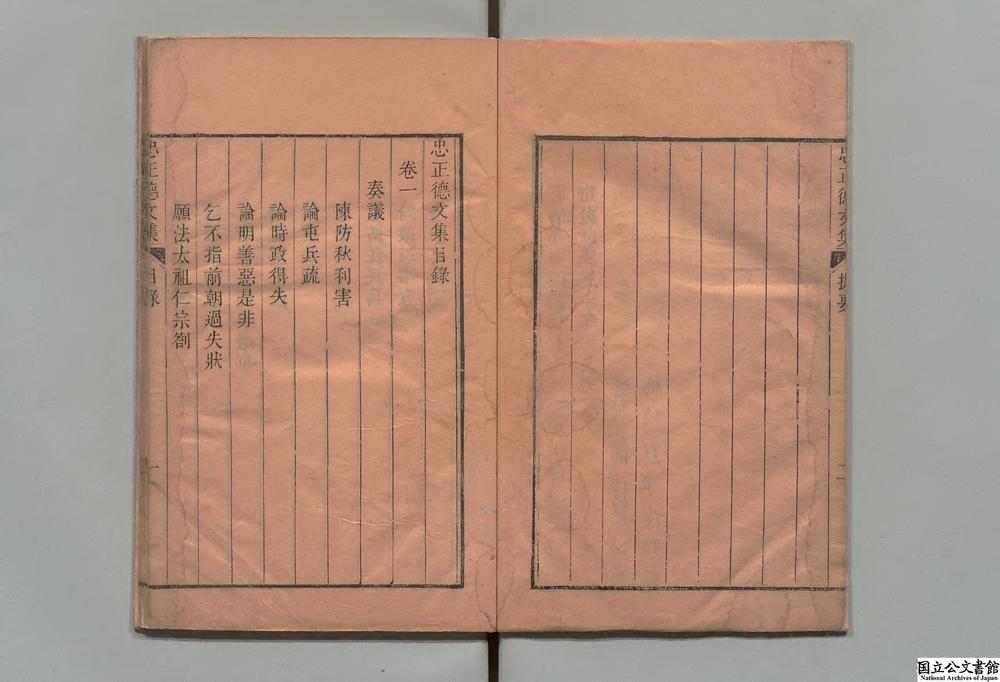 忠正德文集
提要
忠正德文集目錄
卷一
奏議
陳防秋利害
論屯兵疏
論時政得失
論明善惡是非
乞不指前朝過失狀
願法太祖仁宗劄
忠正德文集
目錄
一
国立公文書館
National Archives of Japan